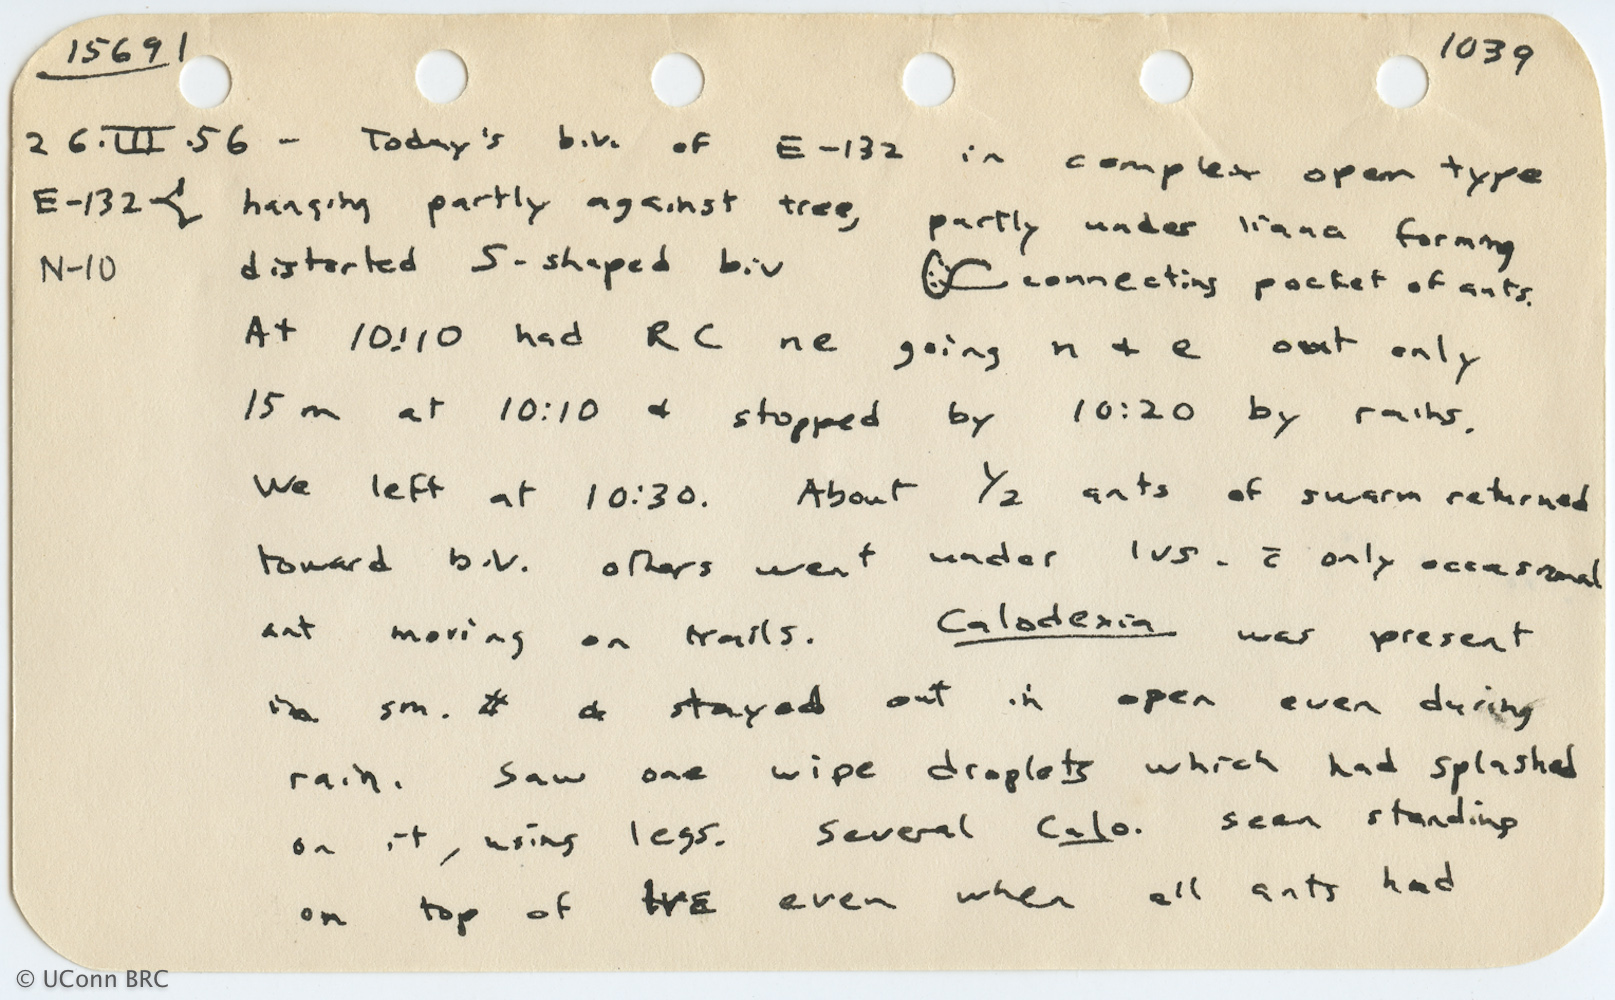 15691 1039
26.III.56 - Today's b.v. of E-132 in complex open type
E-132 hanging partly against tree, partly under liana forming
N-10 distorted S-shaped biv connecting pocket of ants.
At 10:10 had RC ne going n + e out only
15 m at 10:10 & stopped by 10:20 by rains.
We left at 10:30. About 1/2 ants of swarm returned
toward b.v. others went under lvs. c̄ only occasional
ant moving on trails. Calodexia was present
in sm. # & stayed out in open even during
rain. Saw one wipe droplets which had splashed
on it, using legs. Several Calo. seen standing
on top of lvs even when all ants had
© UConn BRC